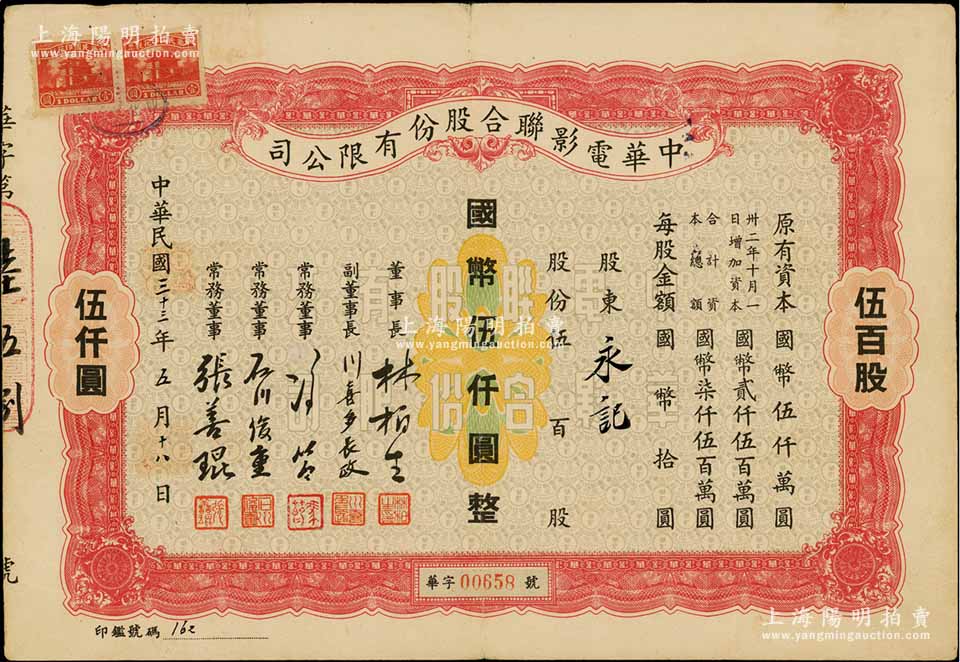 上海陽明拍賣
www.yangmingauction.com
1 DOLLAR
1 DOLLAR
中華電影聯合股份有限公司
伍百股
原有資本國幣伍仟萬圓
卅二年十月一日增加資本國幣貳仟伍百萬圓
合計資本總額國幣柒仟伍百萬圓
每股金額國幣拾圓
股東永記
股份伍百股
國幣伍仟圓整
董事長林柏生
副董事長川喜多長政
常務董事馮節
常務董事石川俊重
常務董事張善琨
中華民國三十三年五月十八日
伍仟圓
華字第
號
上海陽明拍賣
www.yangmingauction.com
華字00658號
印鑑號碼162
上海陽明拍賣
www.yangmingauction.com